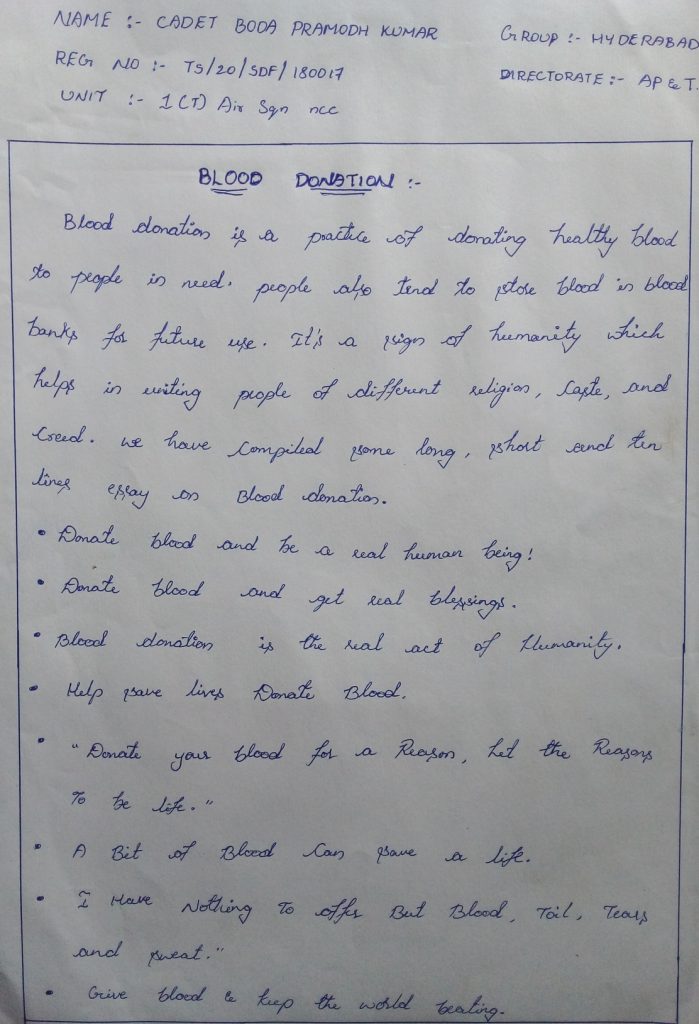 NAME :- CADET BODA PRAMODH KUMAR GROUP :- HYDERABAD
REG NO :- TS/20/SDF/180017 DIRECTORATE :- AP & T.
UNIT :- 1(T) Air Sqn ncc
BLOOD DONATION :-
Blood donation is a practice of donating healthy blood
to people in need. people also tend to store blood in blood
banks for future use. It's a sign of humanity which
helps in uniting people of different religion, Caste, and
Creed. we have Compiled some long, short and ten
lines essay on Blood donation.
• Donate blood and be a real human being!
• Donate blood and get real blessings.
• Blood donation is the real act of Humanity.
• Help save lives Donate Blood.
• "Donate your blood for a Reason, Let the Reasons
To be life."
• A Bit of Blood Can save a life.
• I Have Nothing To offer But Blood, Toil, Tears
and sweat."
• Give blood & keep the world beating.